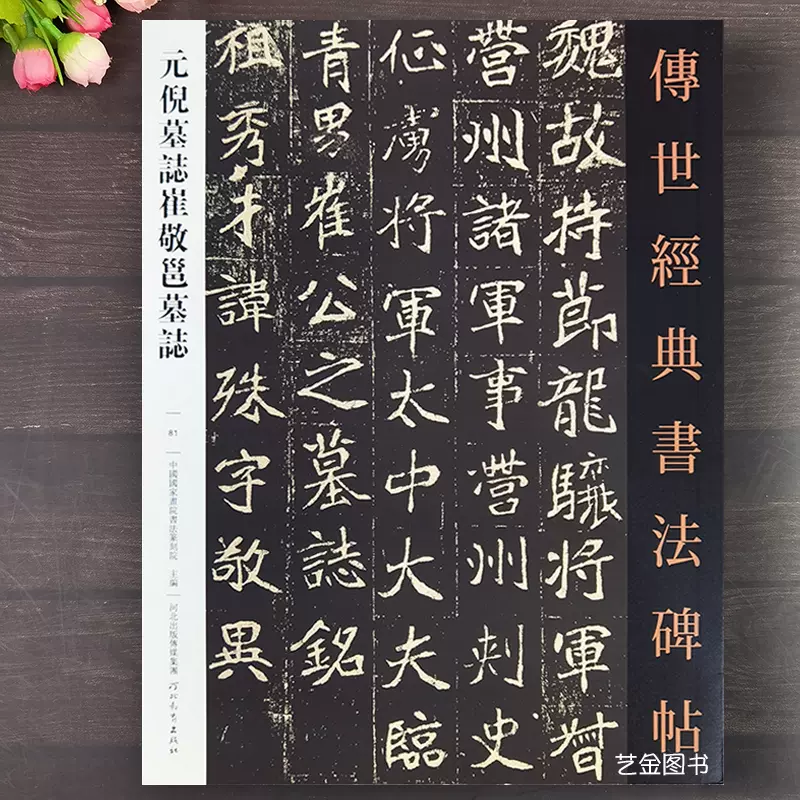 傳世經典書法碑帖
魏故持節龍驤將軍督
營州諸軍事營州刺史
征虜將軍太中大夫臨
青男崔公之墓誌銘
祖秀才諱殊字敬異
元倪墓誌崔敬邕墓誌
81
中國國家畫院書法篆刻院 主編
河北出版傳媒集團
河北教育出版社
艺金图书